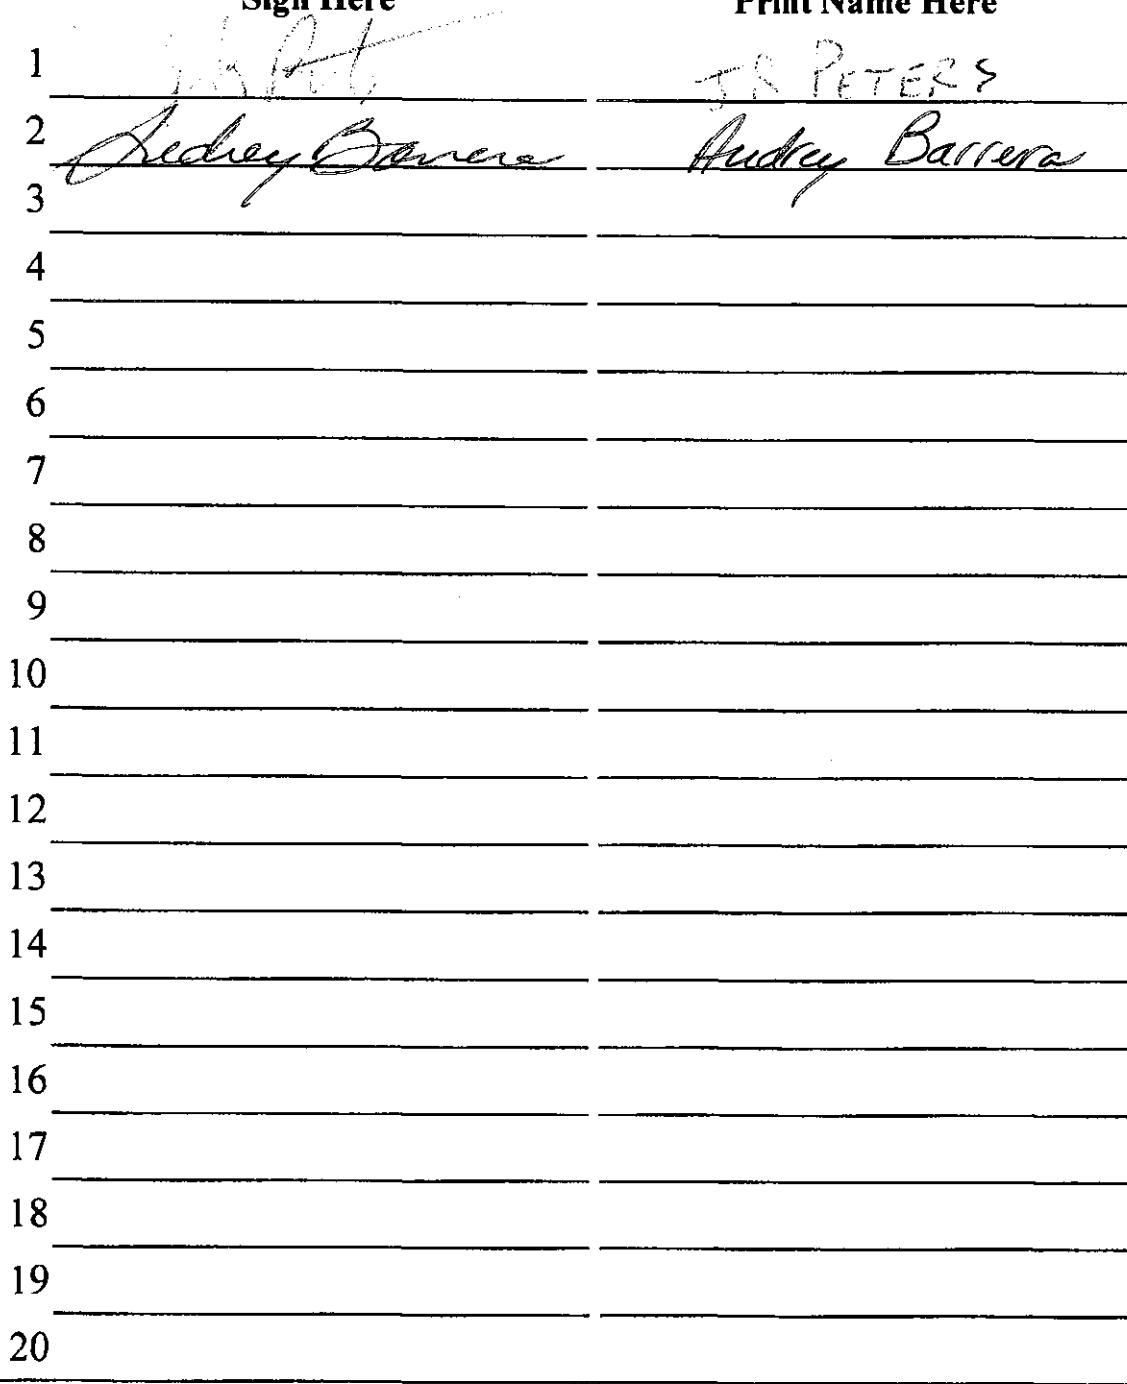 Sign Here Print Name Here
1 JR PETERS
2 Audrey Barrera Audrey Barrera
3
4
5
6
7
8
9
10
11
12
13
14
15
16
17
18
19
20